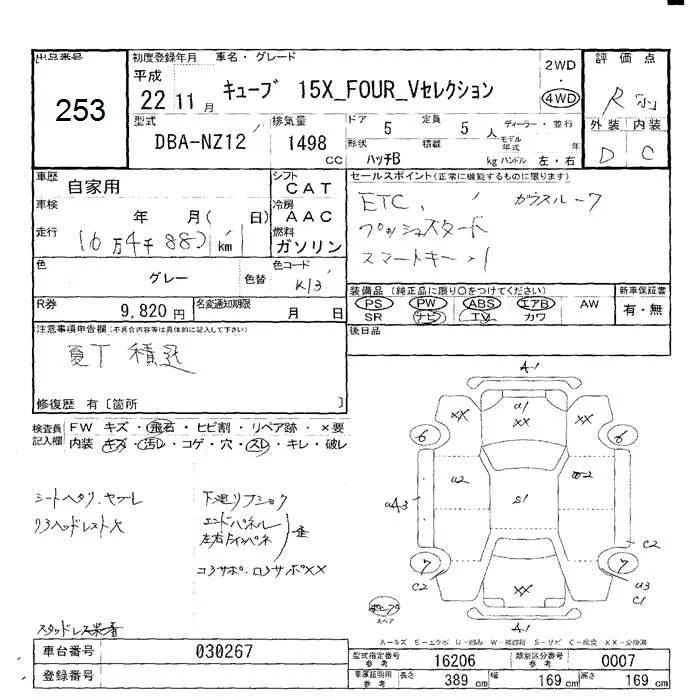 出品番号 253
初度登録年月 車名・グレード
平成 22年 11月 キューブ 15X_FOUR_Vセレクション
2WD
・
4WD
評価点
R
外装 内装
D C
型式 DBA-NZ12
排気量 1498 CC
ドア 5 定員 5 人
ディーラー・並行
形状 ハッチB 積載 kg
モデル年式 年
ハンドル 左・右
車歴 自家用
シフト CAT
車検 年 月( 日)
冷房 AAC
走行 km
燃料 ガソリン
セールスポイント(正常に機能するものに限ります)
ETC、
プッシュスタート
スマートキー
色 グレー 色替
色コード K13
R券 9,820円
名変通知期限 月 日
装備品 (純正品に限り○をつけてください)
PS PW ABS エアB AW
SR ナビ TV カワ
新車保証書
有・無
後日品
注意事項申告欄(不具合内容等は具体的に記入して下さい)
夏T 積込
修復歴 有〔箇所 〕
検査員記入欄
FW キズ・飛石・ヒビ割・リペア跡・×要
内装 キズ・汚レ・コゲ・穴・スレ・キレ・破レ
シートヘタリ・ヤブレ
リヤヘッドレスト欠
エンドパネル
コアサポ・ロアサポXX
スタッドレス装着
A1
XX
U1
XX
XX
6
6
U2
S1
A3
7
7
C2
C2
U3
C1
XX
A1
スペア
A-キズ E-エクボ U-凹み W-補修跡 S-サビ C-腐食 XX-交換済
車台番号 030267
登録番号
型式指定番号 参考 16206
類別区分番号 参考 0007
車庫証明用 参考 長さ 389 cm 幅 169 cm 高さ 169 cm